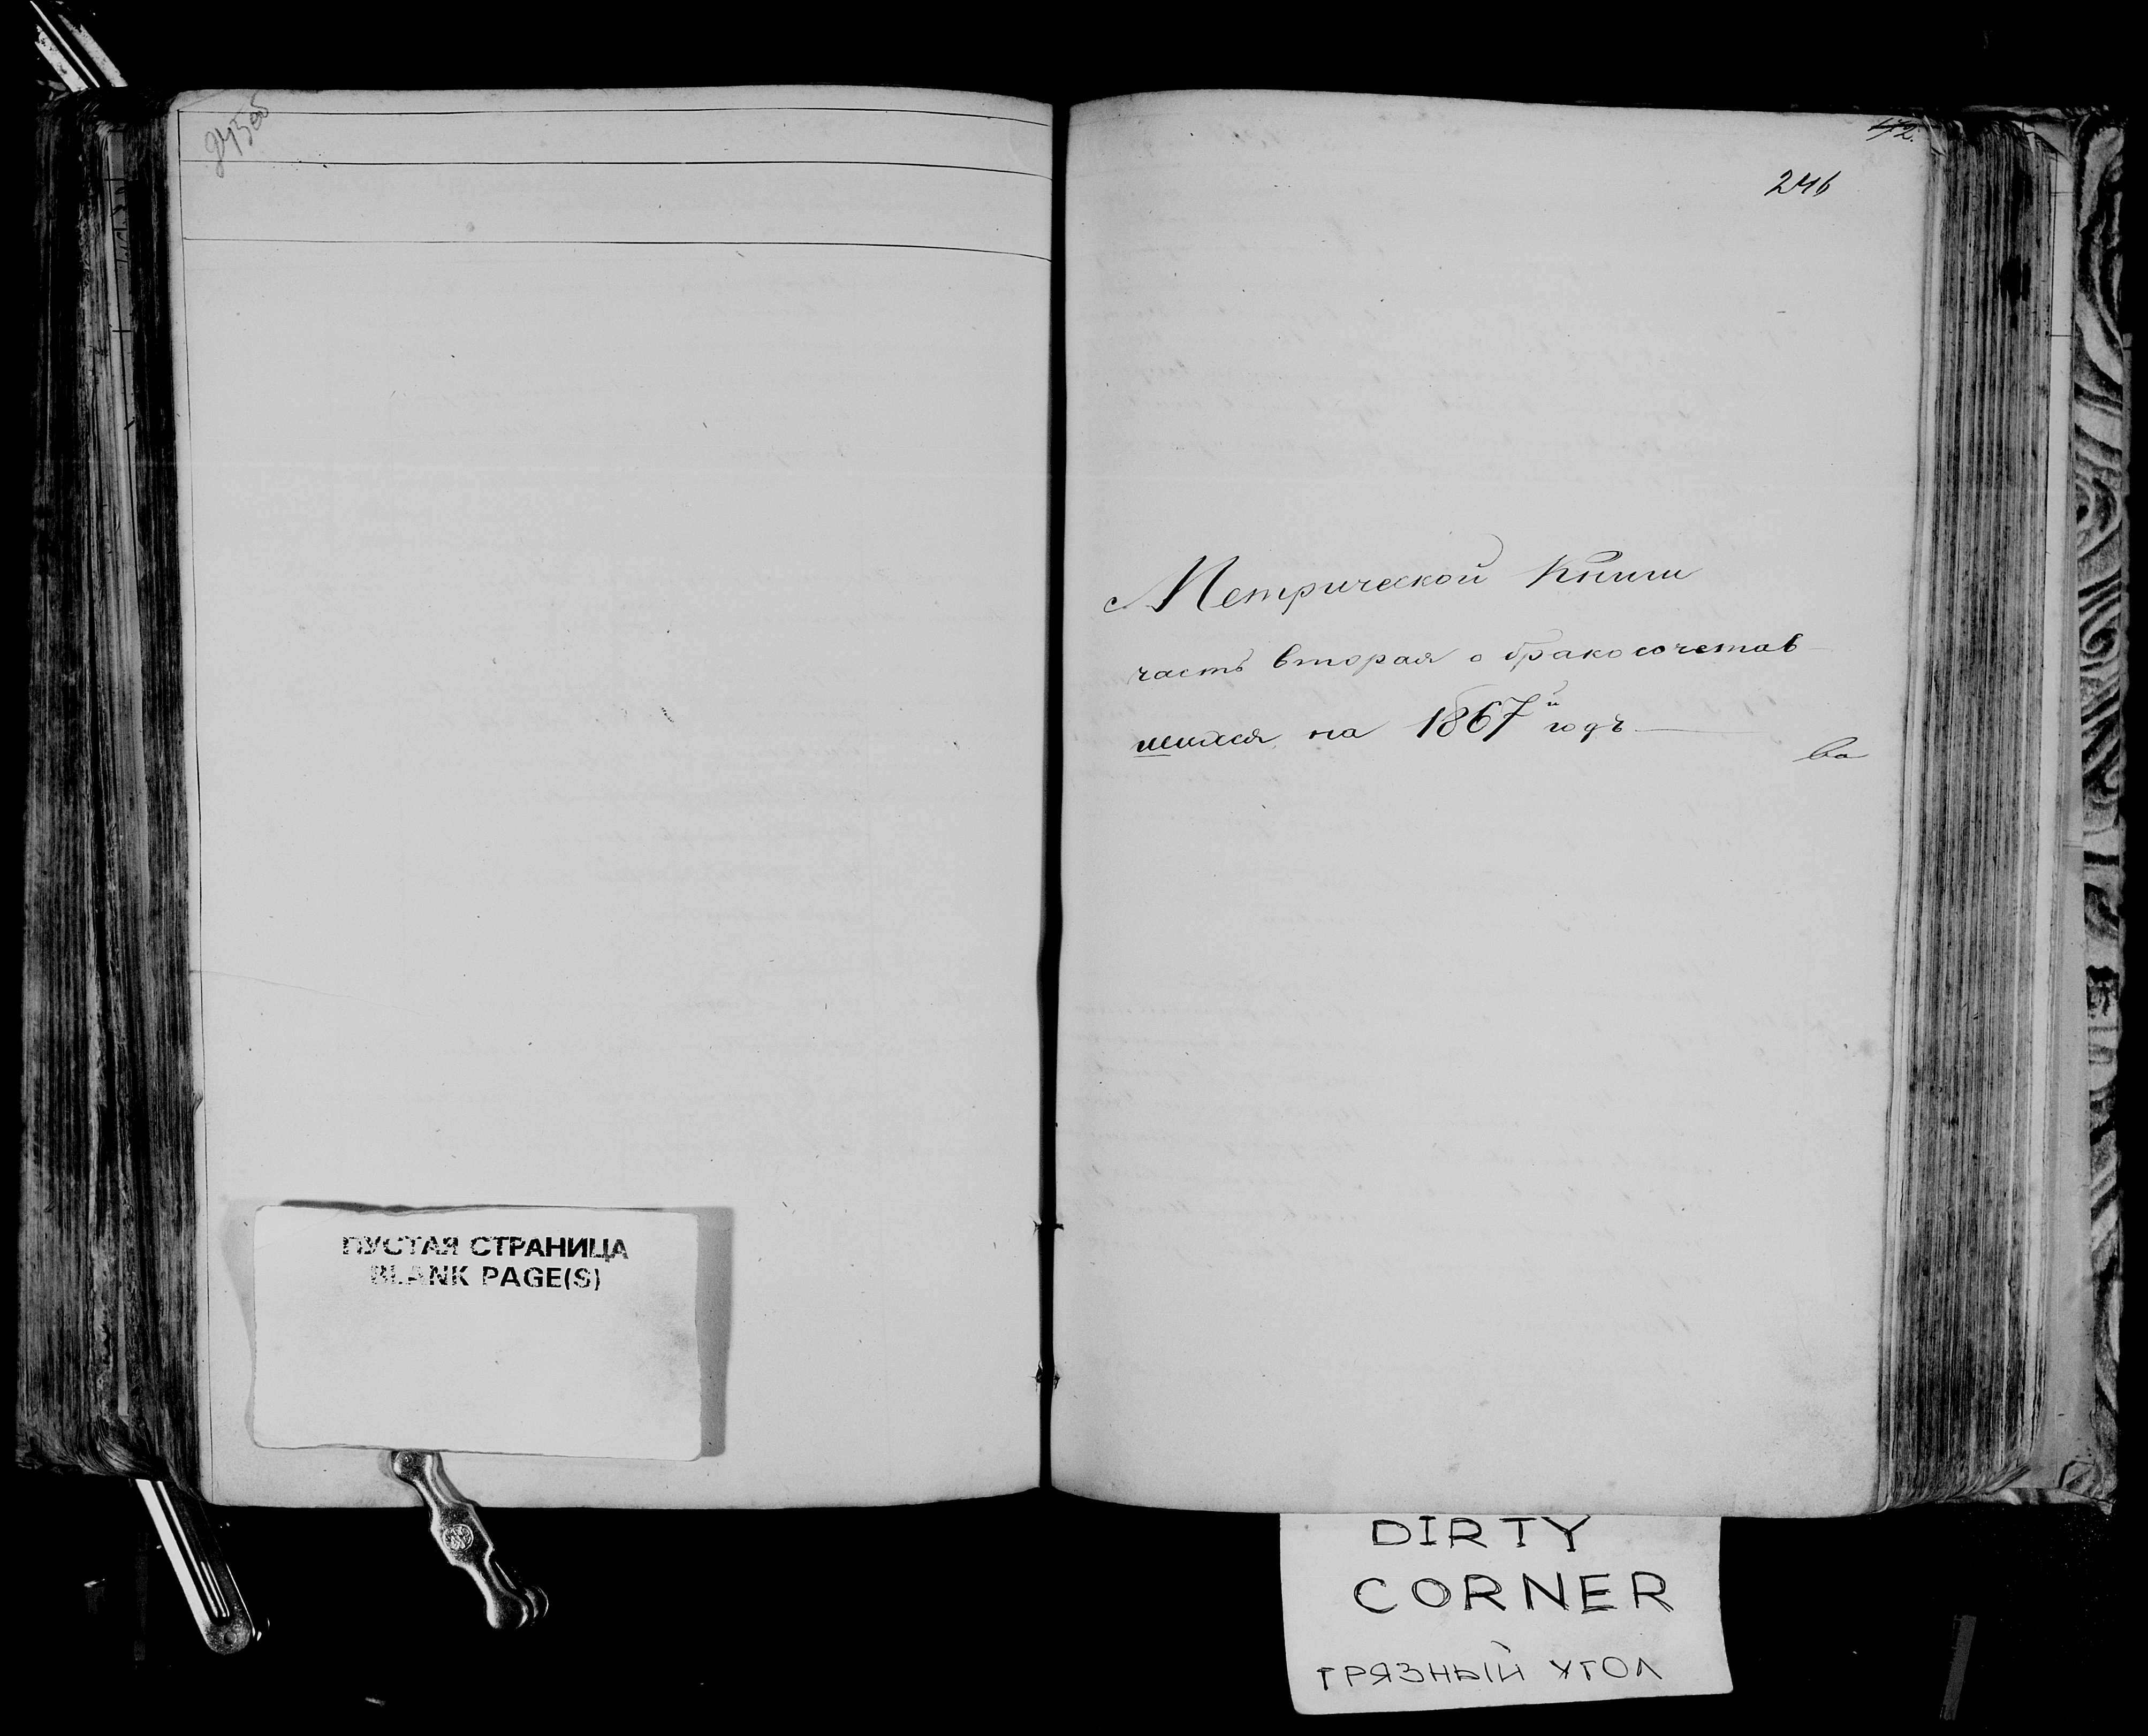 ПУСТАЯ СТРАНИЦА
BLANK PAGE(S)
246
Метрической Книги
часть вторая о бракосочетав-
шихся, на 1867й годъ
ва
DIRTY
CORNER
ГРЯЗНЫЙ УГОЛ